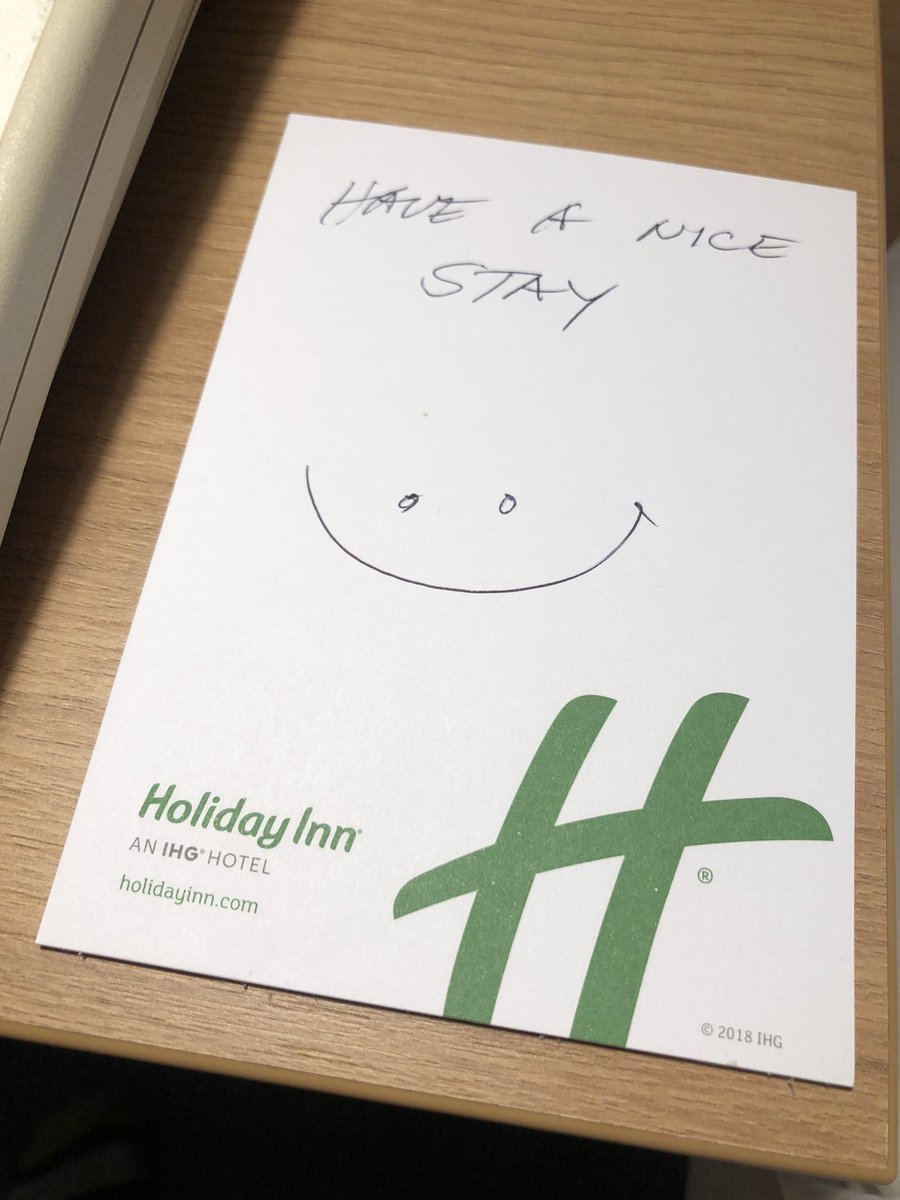 HAVE A NICE
STAY
Holiday Inn®
AN IHG® HOTEL
holidayinn.com
H®
© 2018 IHG